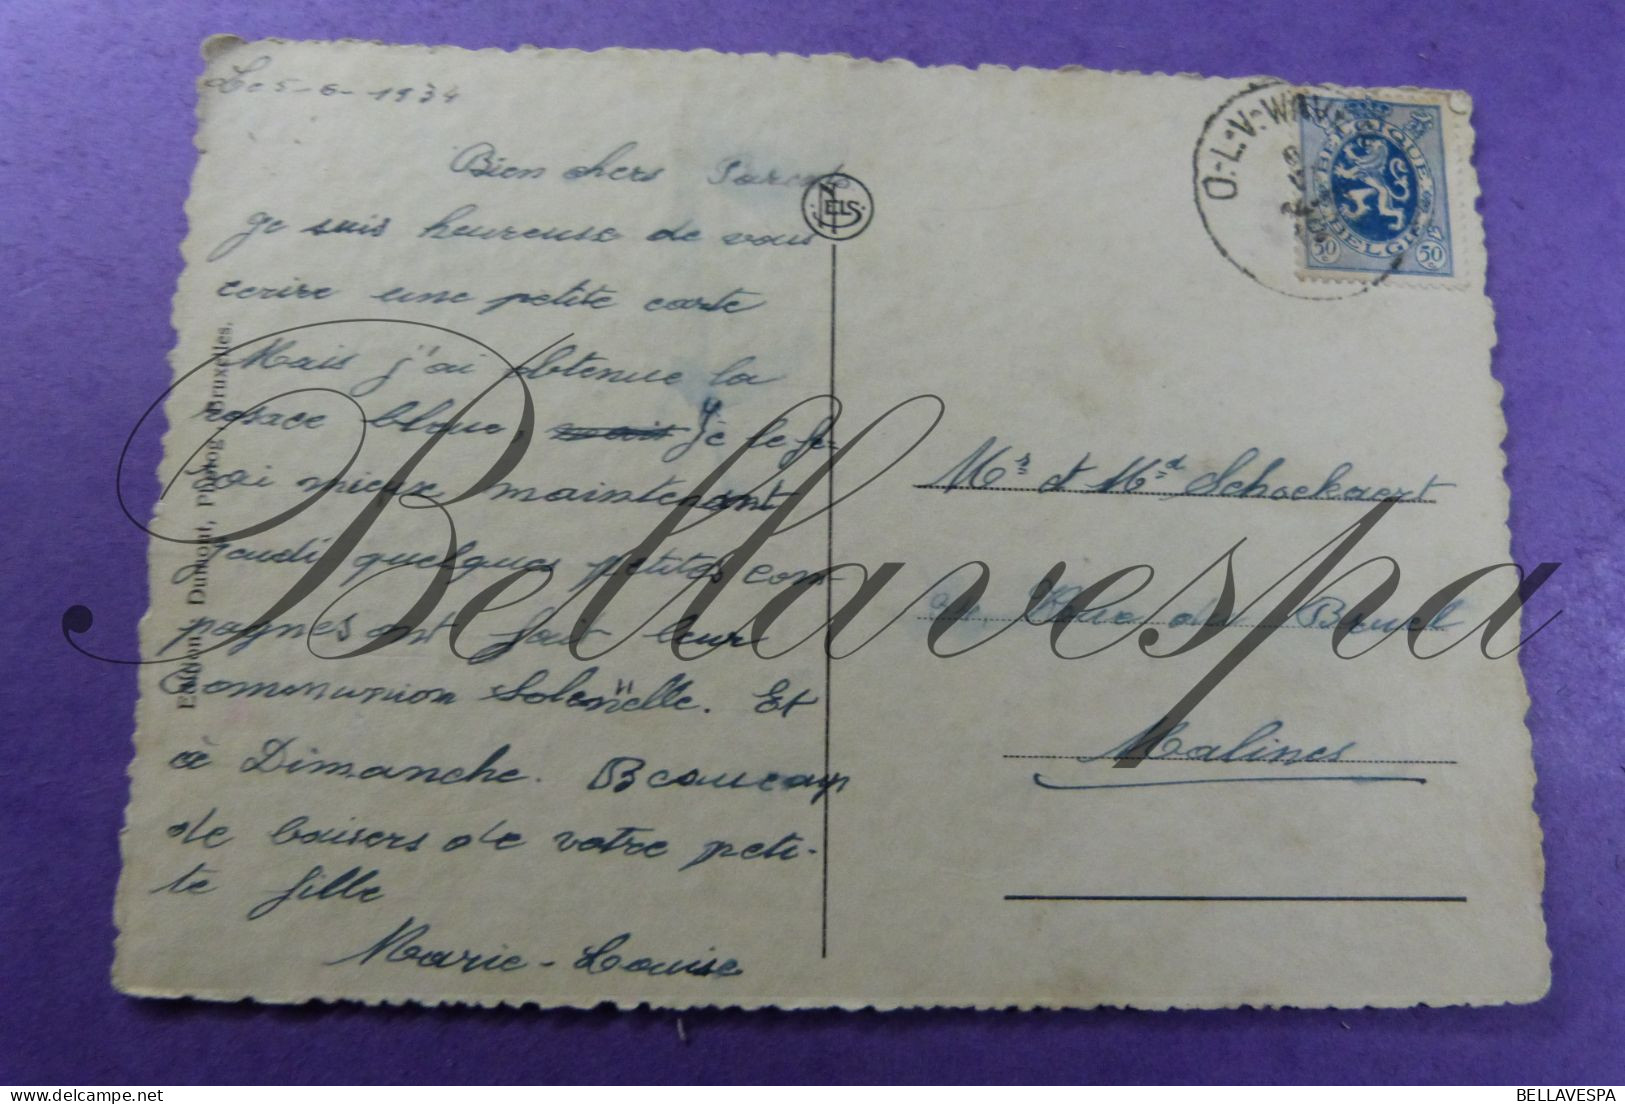 Le 5-6-1934
Bien chers Parents
Je suis heureuse de vous
écrire une petite carte
Mais j'ai obtenue la
rosace bleue, mais Je le fe-
rai mieux maintenant
jeudi quelques petites com-
pagnes ont fait leur
Communion Solennelle. Et
à Dimanche. Beaucoup
de baisers de votre peti-
te fille
Marie-Louise
Edition Dumont, Photog. Bruxelles.
NELS
O.-L.-V.-WAV
BELGIQUE
BELGIE
50 c 50 c
Mr et Md Schockaert
Rue du Bruel
Malines
Bellavespa
BELLAVESPA